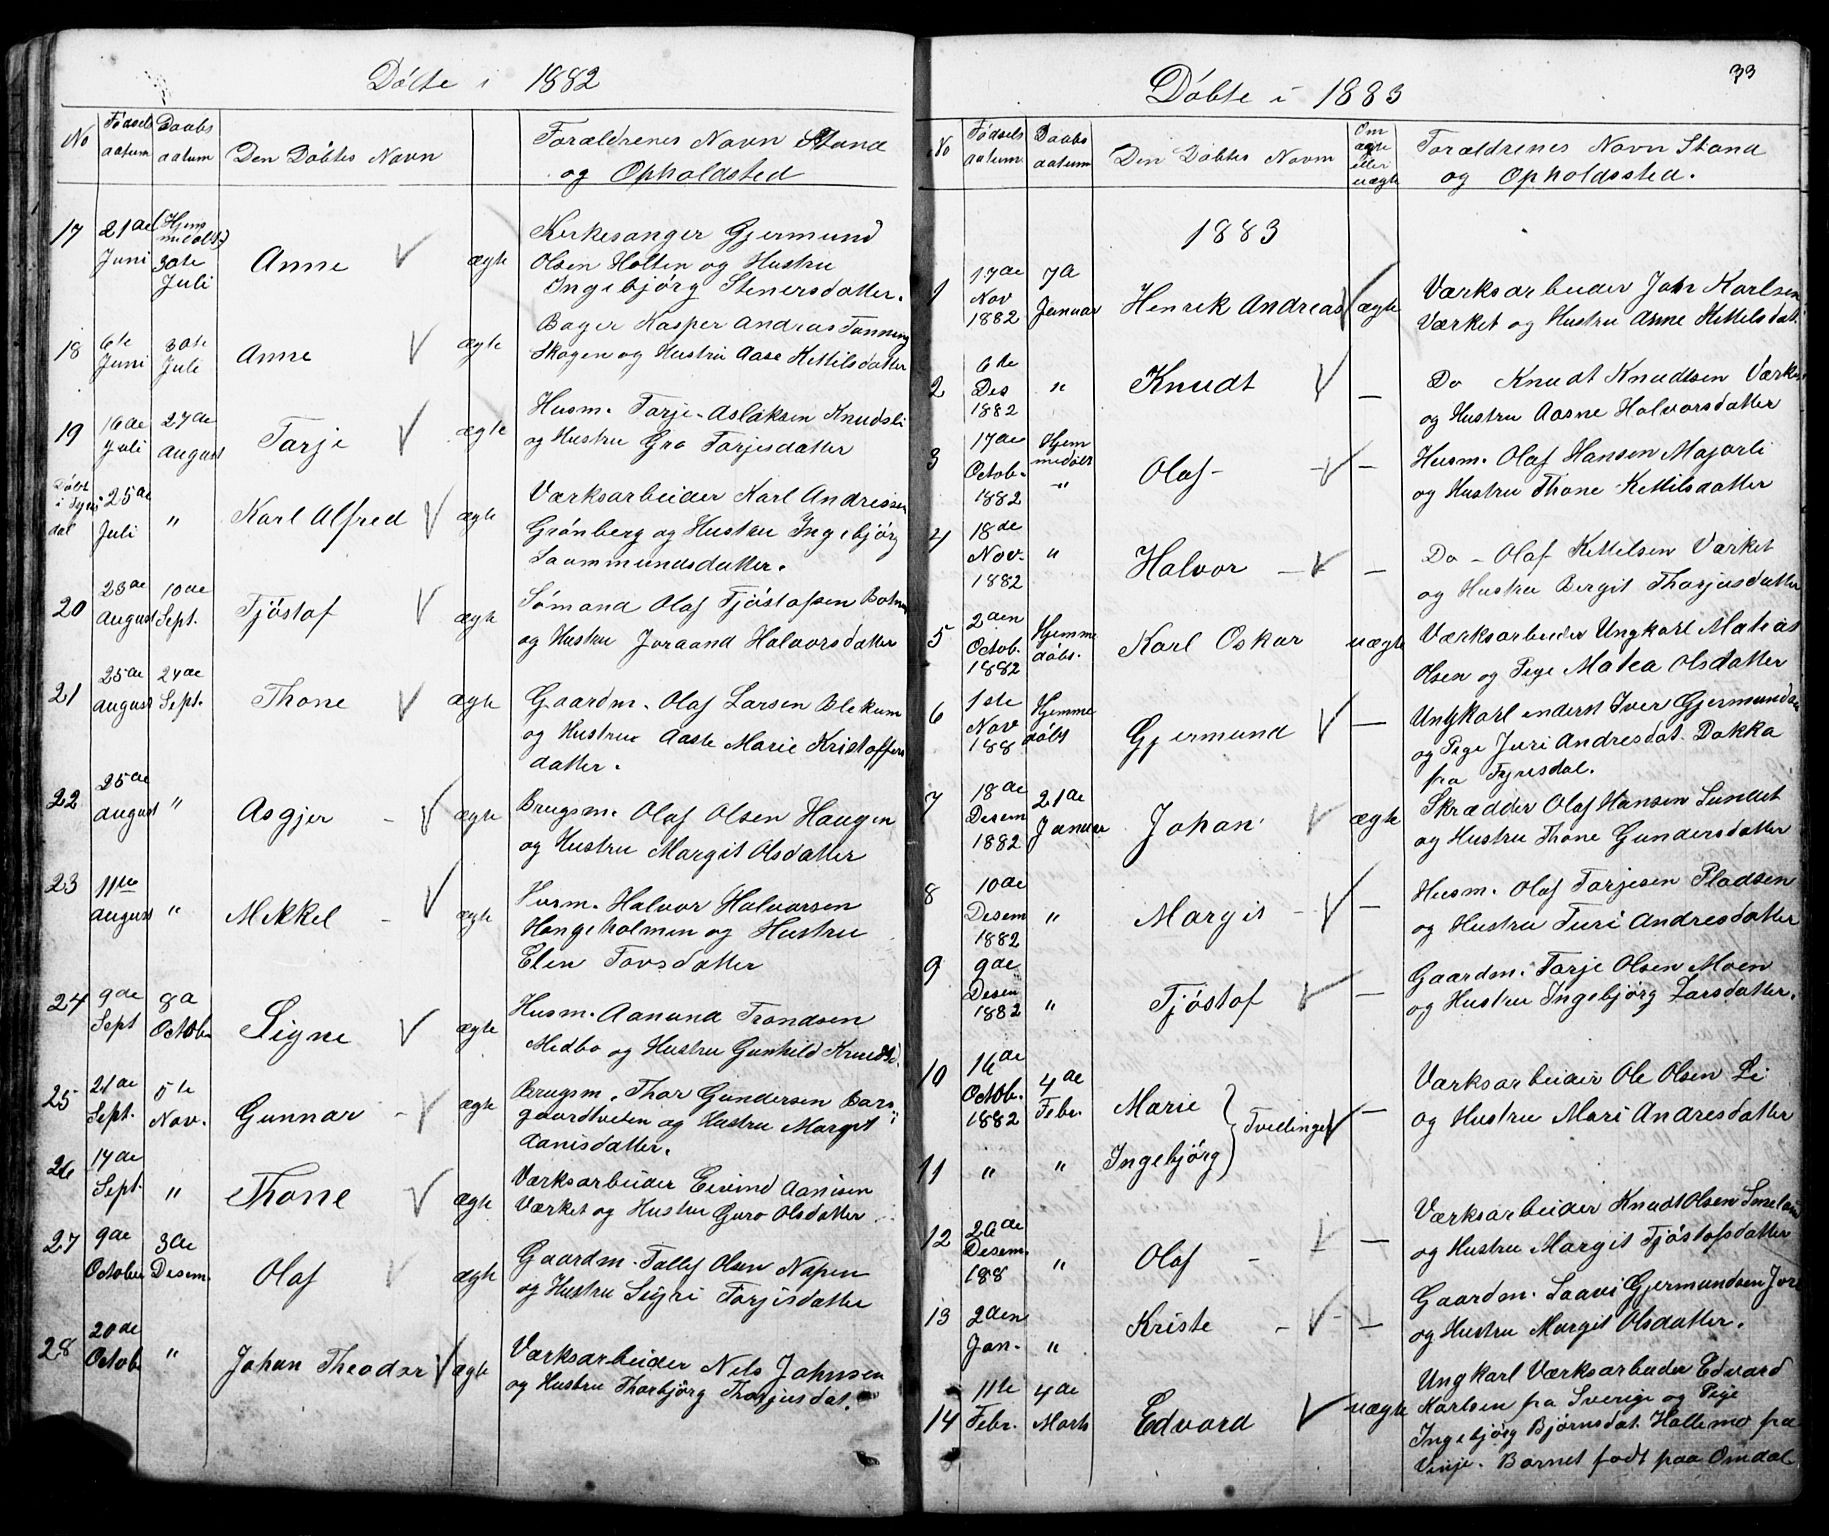 Döbte i 1882
No
Fødsels
datum
Daabs
datum
Den Döbtes Navn
Forældrenes Navn Stand
og Opholdsted
17
21de
Juni
(Hjem
medöbt)
30te
Juli
Anne
ægte
Kirkesanger Gjermund
Olsen Holten og Hustru
Ingebjörg Stenersdatter.
18
6te
Juni
30te
Juli
Anne
ægte
Bager Kasper Andreas
Skogen og Hustru Aase Kittilsdatter
19
16de
Juli
27de
August
Tarje
ægte
Husm. Tarje Aslaksen Knudsli
og Hustru Gro Tarjesdatter
Döbt
i Fyris
dal
25de
Juli
"
Karl Alfred
ægte
Værksarbeider Karl Andresen
Grönberg og Hustru Ingebjörg
Saammundsdatter.
20
23de
August
10de
Sept.
Tjöstof
ægte
Sömand Olaf Tjöstofsen
og Hustru Joraand Halvorsdatter
21
25de
August
24de
Sept.
Thone
ægte
Gaardm. Olaf Larsen Blekum
og Hustru Aaste Marie Kristoffers
datter.
22
25de
August
"
Asgjer
ægte
Brugsm. Olaf Olsen Haugen
og Hustru Margit Olsdatter
23
11te
August
"
Mekkel
ægte
Husm. Halvor Halvorsen
Hengeholmen og Hustru
Elen Tovsdatter
24
9de
Sept
8a
Octobr
Signe
ægte
Husm. Aanund Trondsen
Medbo og Hustru Gunhild Knudsd.
25
21de
Sept.
5te
Nov.
Gunnar
ægte
Brugsm. Thor Gundersen Bors
gaardtveten og Hustru Margit
Aanisdatter.
26
17de
Sept.
"
Thone
ægte
Værksarbeider Eivind Aanisen
Værket og Hustru Guro Olsdatter
27
9de
October
3de
Desem.
Olaf
ægte
Gaardm. Tallef Olsen Napen
og Hustru Sigri Tarjisdatter
28
20de
Octob
"
Johan Theodor
ægte
Værksarbeider Nils Johnsen
og Hustru Thorbjörg Thorjusdat.
33
Döbte i 1883
No
Födsels
datum
Daabs
datum
Den Döbtes Navn
Om
ægte
eller
uægte
Forældrenes Navn Stand
og Opholdssted.
1883
1
17de
Nov
1882
7a
Januar
Henrik Andreas
ægte
Værksarbeider John Karlsen
Værket og Hustru Anne Kittelsdat.
2
6te
Des
1882
"
Knudt
—
Do Knudt Knudtsen Værke
og Hustru Aasne Halvorsdatter
3
17de
Octob.
1882
Hjem
medöbt
"
Olaf
—
Husm. Olaf Hansen Majorli
og Hustru Thone Kittilsdatter
4
18de
Nov.
1882
"
Halvor
—
Do - Olaf Kittelsen Værket
og Hustru Bergit Thorjusdatter
5
2den
Octob.
1882
Hjemme
döbt.
Karl Oskar
uægte
Værksarbeider Ungkarl Matias
Olsen og Pige Matea Olsdatter
6
1ste
Nov
188
Hjemme
döbt
Gjermund
—
Ungkarl Iver Gjermundsen
og Pige Juri Andresdat. Dokka
fra Fyrisdal.
7
18de
Desem
1882
21de
Januar
Johan
ægte
Skrædder Olaf Hansen Sundet
og Hustru Thone Gundersdatter
8
10de
Desem
1882
"
Margit
—
Husm. Olaf Tarjesen Pladsen
og Hustru Turi Andresdatter
9
9de
Desem
1882
"
Tjöstof
—
Gaardm. Tarje Olsen Moen
og Hustru Ingebjörg Larsdatter.
10
16de
Octob.
1882
4de
Febr.
Marie
Tvillinger
—
Værksarbeider Ole Olsen Li
og Hustru Mari Andresdatter
11
"
"
Ingebjörg
12
26de
Desem.
188
"
Olaf
—
Værksarbeider Knudt Olsen
og Hustru Margit Tjöstofsdatter
13
2den
Jan.
"
Kriste
—
Gaardm. Saavi Gjermundsen
og Hustru Margit Olsdatter.
14
11te
Febr.
4de
Marts
Edvard
uægte
Ungkarl Værksarbeider Edvard
Karlsen fra Sverige og Pige
Ingebjörg Björnsdat. fra
Vinje. Barnet födt paa Omdal